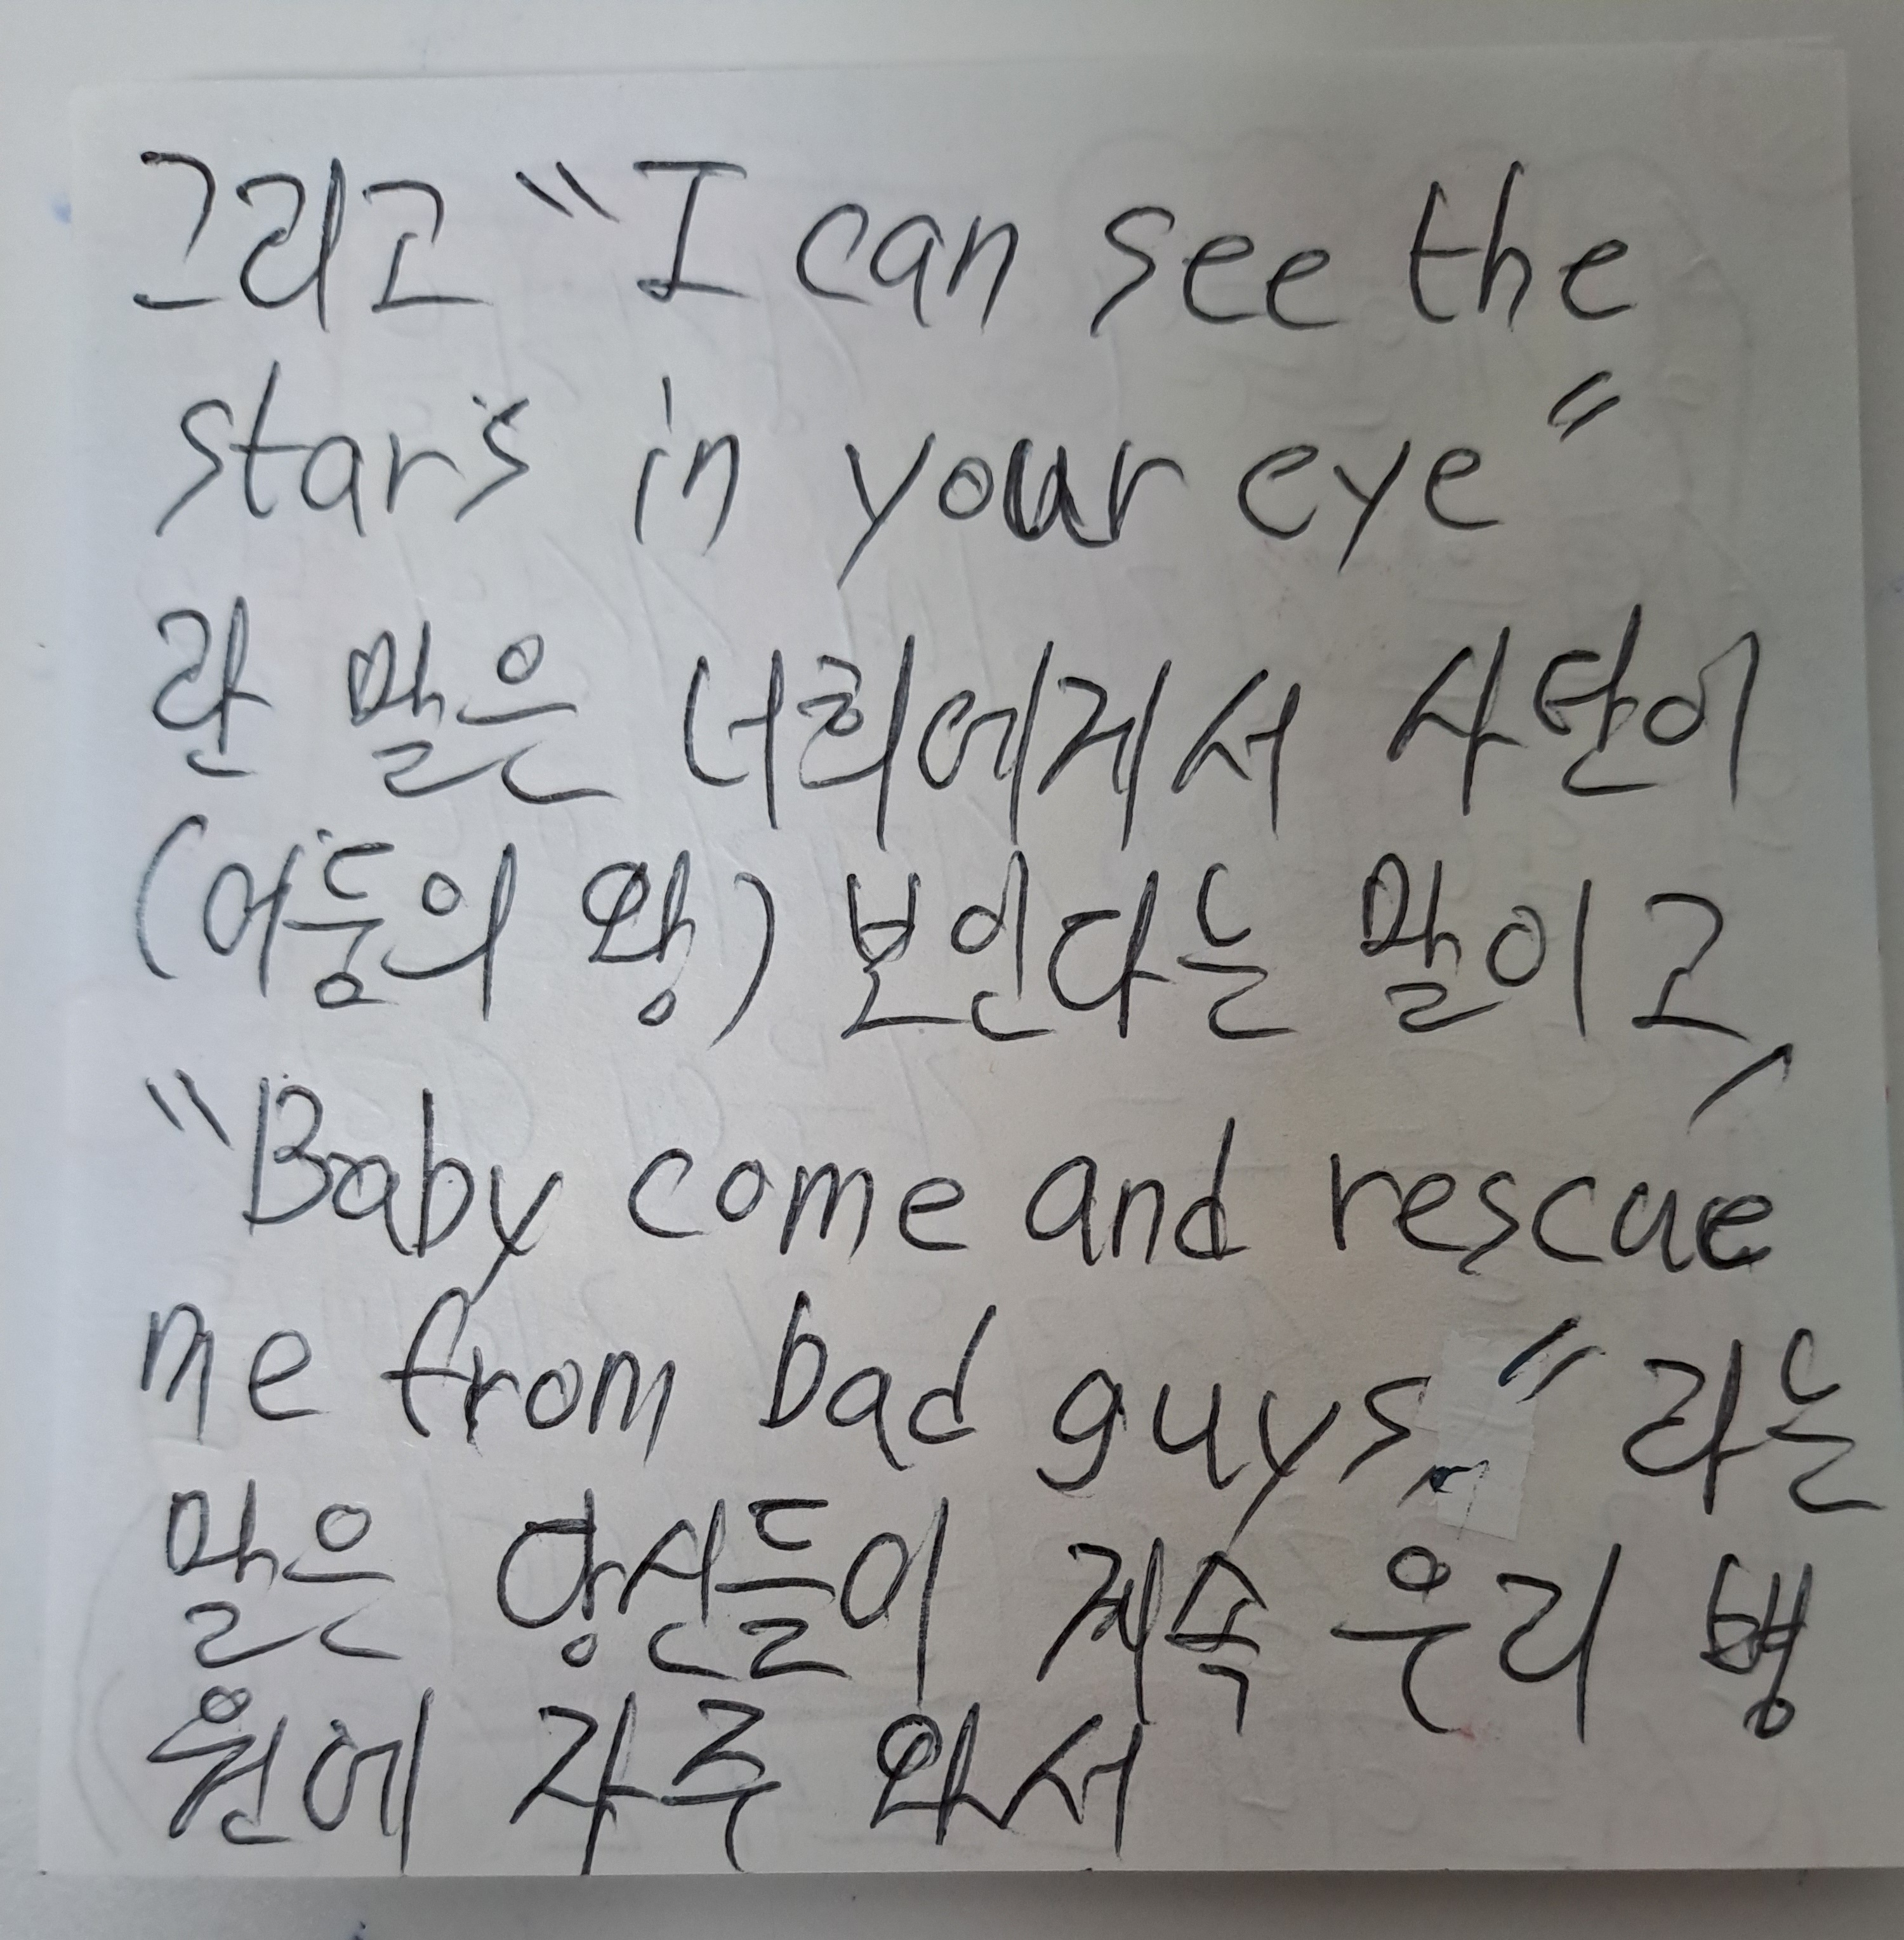 그리고 "I can see the
stars in your eye"
란 말은 너희에게서 사단이
(어둠의 왕) 보인다는 말이고,
"Baby come and rescue
me from bad guys." 라는
말은 당신들이 계속 우리 병
원에 자주 와서